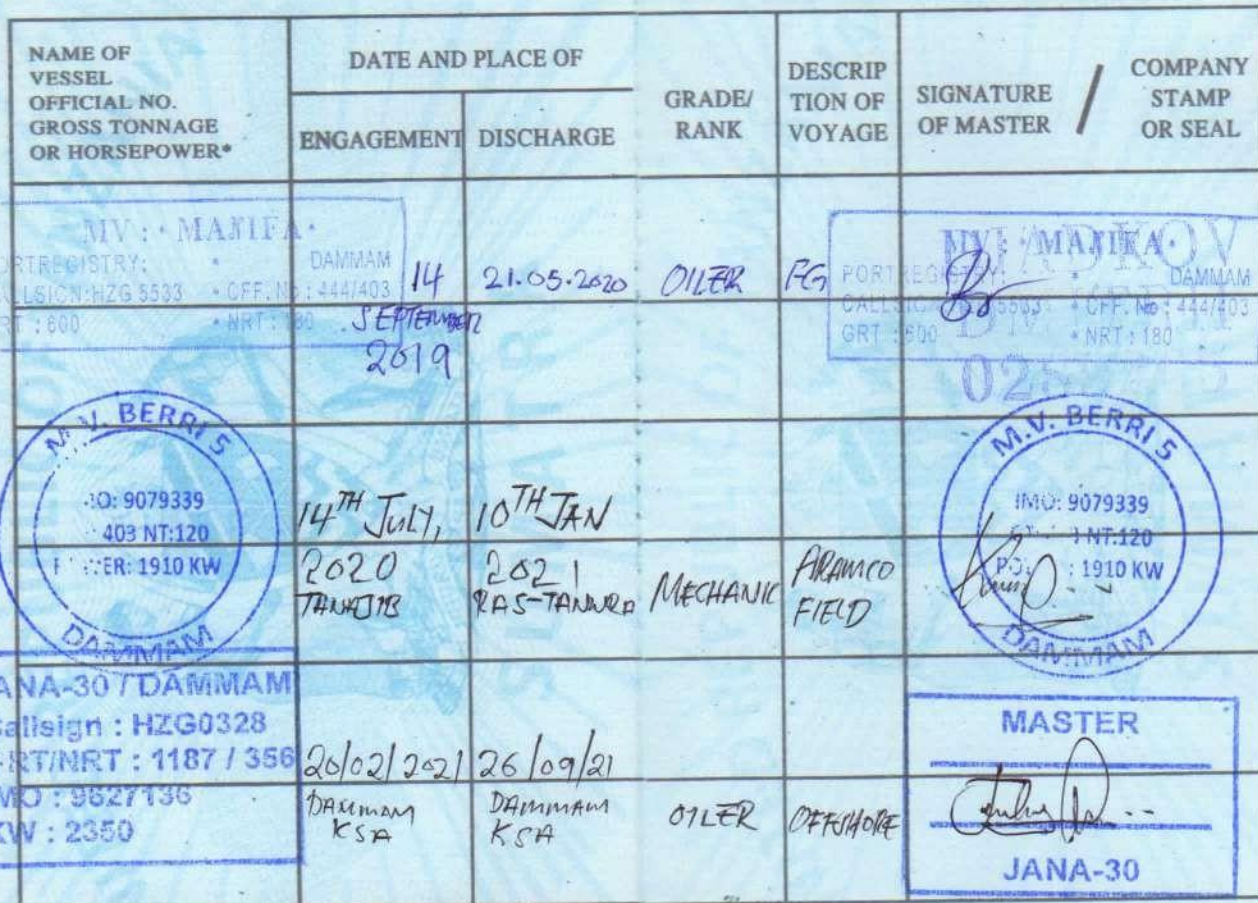 NAME OF
VESSEL
OFFICIAL NO.
GROSS TONNAGE
OR HORSEPOWER*
DATE AND PLACE OF
ENGAGEMENT
DISCHARGE
GRADE/
RANK
DESCRIP
TION OF
VOYAGE
SIGNATURE
OF MASTER
/
COMPANY
STAMP
OR SEAL
MV : · MANIFA ·
DAMMAM
CALLSIGN:HZG 5533 • OFF. No : 444/403
GRT : 600 • NRT : 180
14
SEPTEMBER
2019
21.05.2020
OILER
FG
PORT REGISTRY
DAMMAM
5533 • OFF. No : 444/403
GRT : 600 • NRT : 180
M.V. BERRI 5
9079339
403 NT:120
1910 KW
DAMMAM
14TH JULY,
2020
TANAJIB
10TH JAN
2021
RAS-TANURA
MECHANIC
ARAMCO
FIELD
M.V. BERRI 5
IMO: 9079339
NT:120
: 1910 KW
DAMMAM
JANA-30 / DAMMAM
Callsign : HZG0328
RT/NRT : 1187 / 356
IMO : 9627136
KW : 2350
20/02/2021
DAMMAM
KSA
26/09/21
DAMMAM
KSA
OILER
OFFSHORE
MASTER
JANA-30